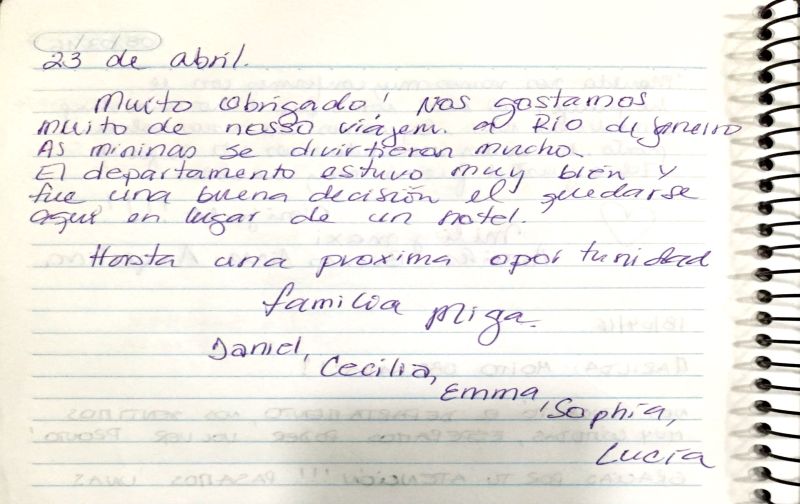 23 de abril.
Muito obrigado! Nos gostamos
muito de nosso viájem. a Rio de Janeiro
As mininas se divirtieron mucho.
El departamento estuvo muy bién y
fue una buena decisión el quedarse
aqui en lugar de un hotel.
Hasta una proxima oportunidad
familia Miga.
Daniel,
Cecilia,
Emma,
Sophia,
Lucía